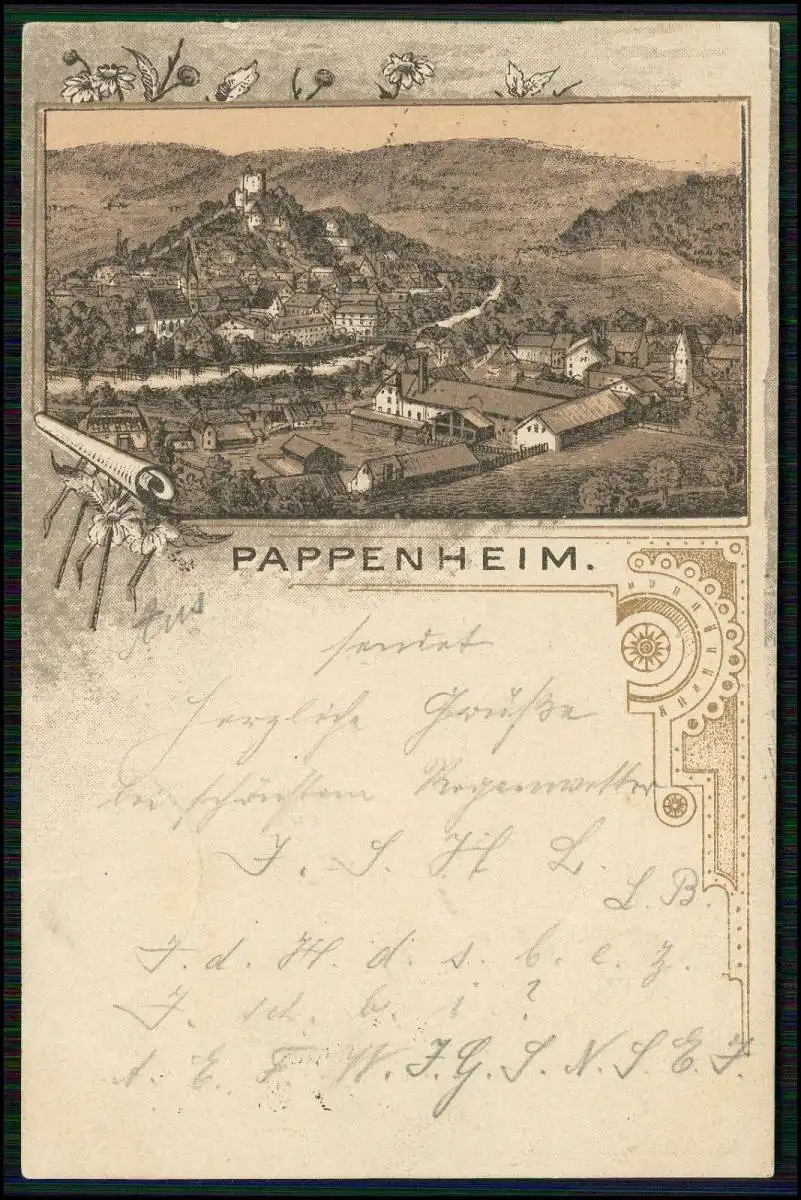 PAPPENHEIM.
Aus
sendet
herzliche Grüße
bei schönstem Regenwetter
J. S. H L.
L. B.
J. d. H. d. s. b. e. z.
J. sch. b. i ?
A. E. F. W. J. G. S. N. S. E. J.